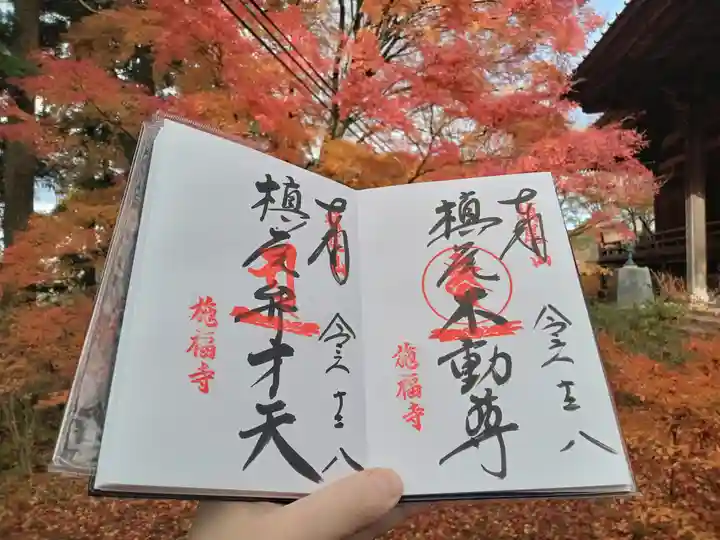 奉拝
令六 十二 八
槇尾不動尊
施福寺
奉拝
令六 十二 八
槇尾弁才天
施福寺